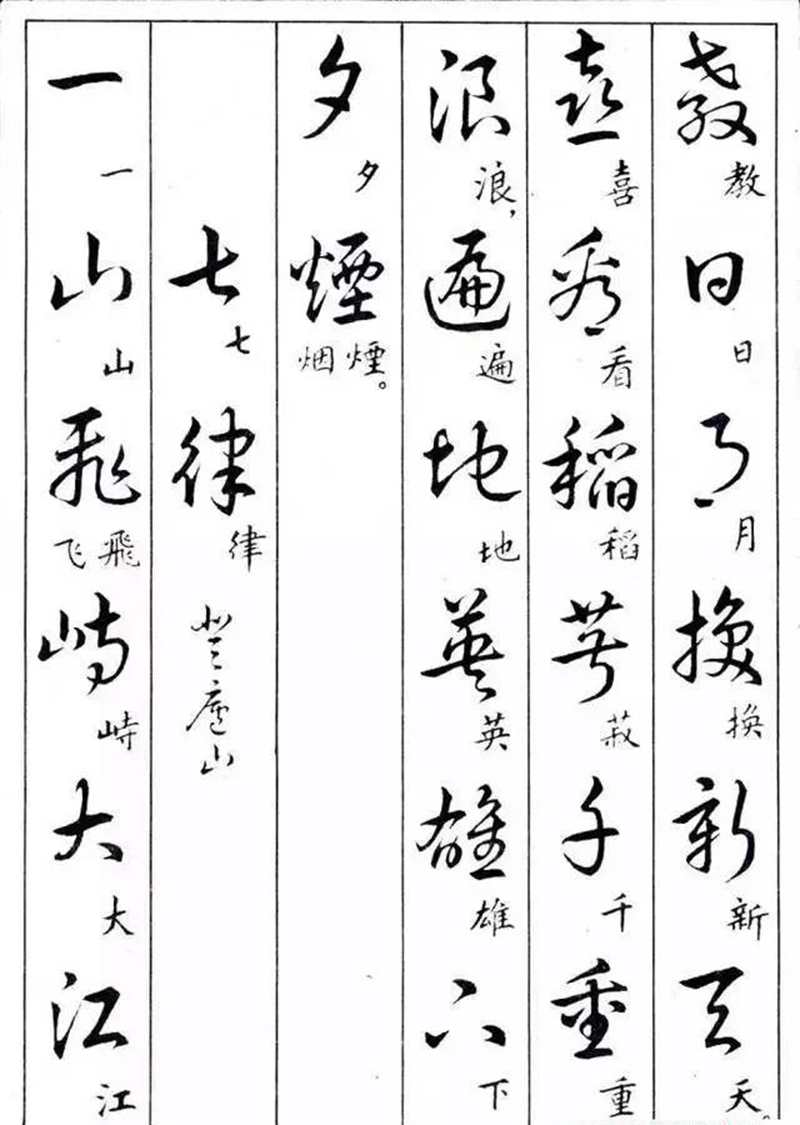 教日月换新天
教日月换新天。
喜看稻菽千重
喜看稻菽千重
浪遍地英雄下
浪，遍地英雄下
夕煙
夕煙。
烟
七律
七律
登廬山
一山飛峙大江
一山飛峙大江
飞